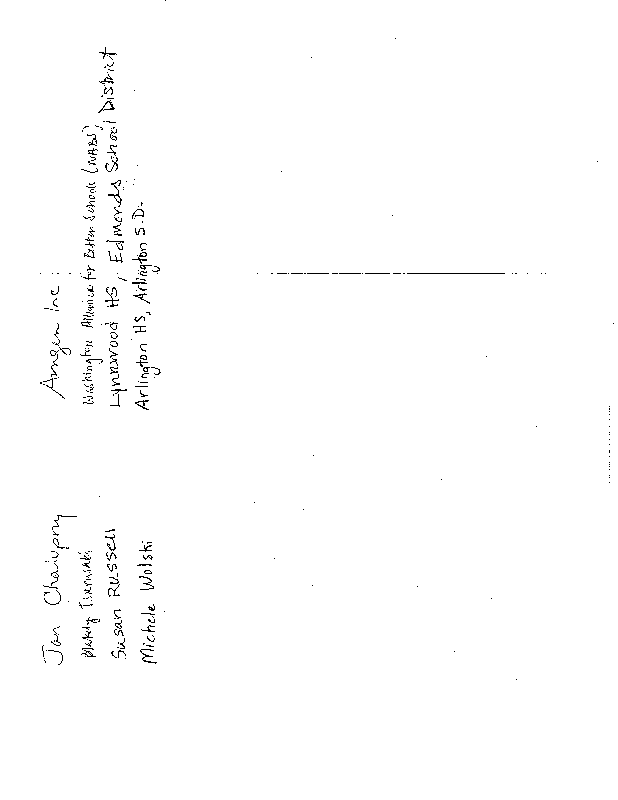 Jan Amgen Inc.
Washington Alliance for Better Schools (WABS)
Susan Russell Lynnwood HS, Edmonds School District
Michele Wolski Arlington HS, Arlington S.D.